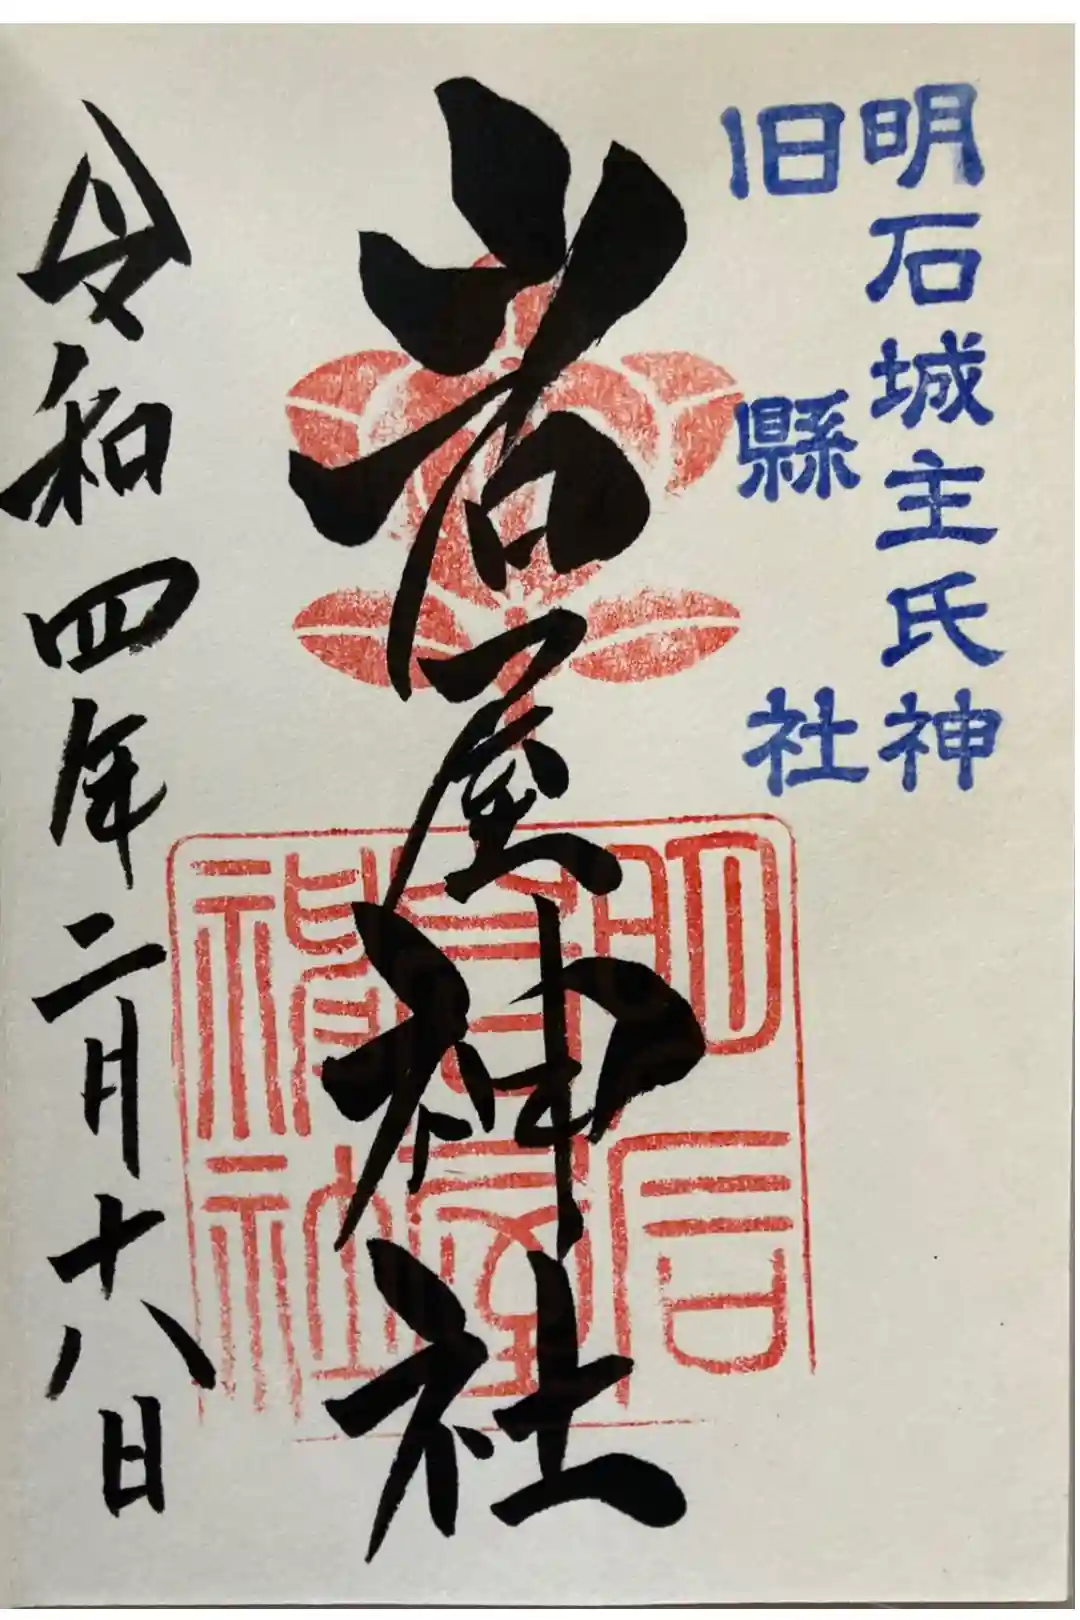 明石城主氏神
旧縣社
岩屋神社
令和四年二月十八日